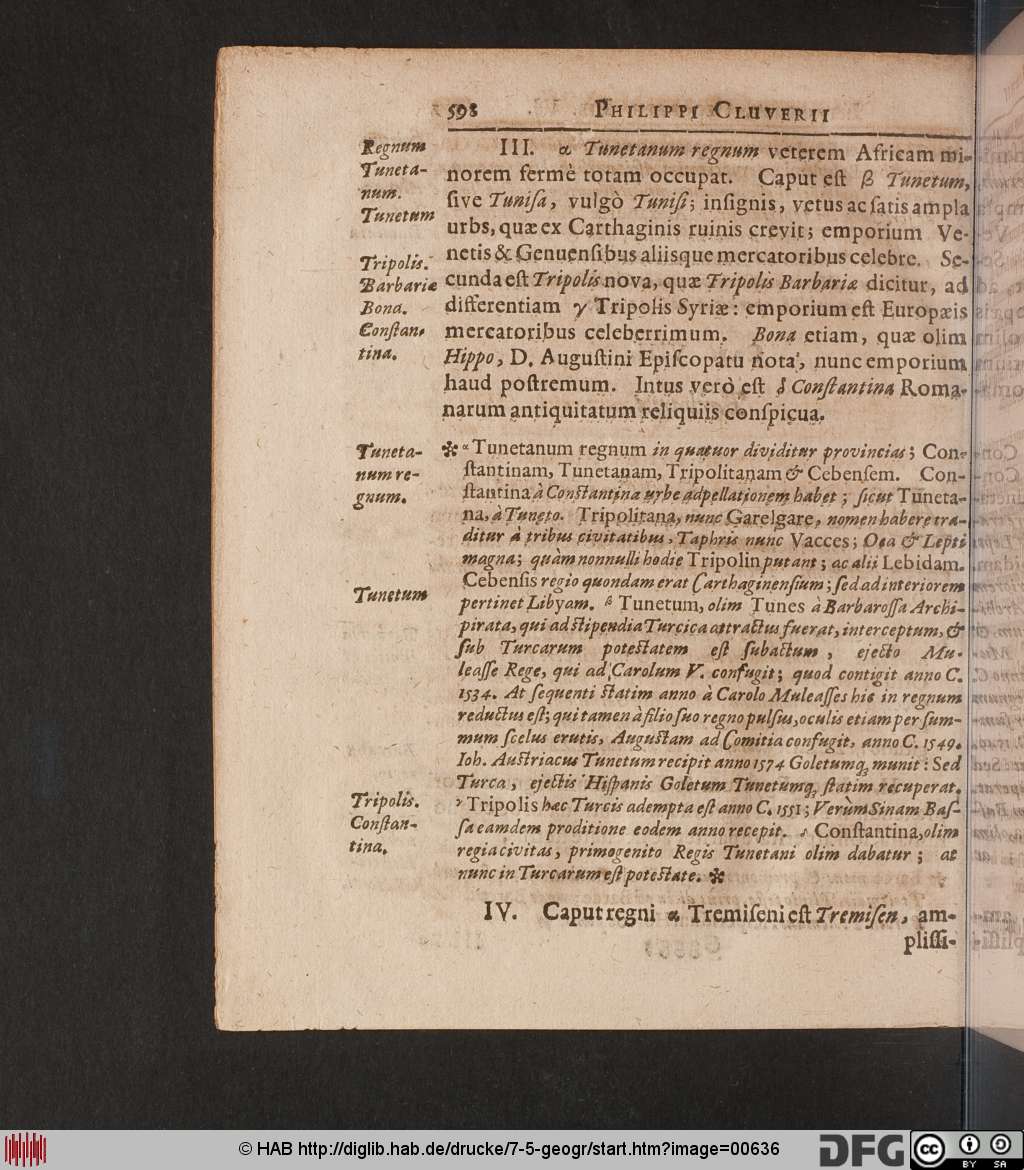 598 PHILIPPI CLUVERII
Regnum
Tuneta-
num.
Tunetum
Tripolis.
Barbariæ
Bona.
Constan-
tina.
III. α Tunetanum regnum veterem Africam mi-
norem fermè totam occupat. Caput est β Tunetum,
sive Tunisa, vulgò Tunisi; insignis, vetus ac satis ampla
urbs, quæ ex Carthaginis ruinis crevit; emporium Ve-
netis & Genuensibus aliisque mercatoribus celebre. Se-
cunda est Tripolis nova, quæ Tripolis Barbariæ dicitur, ad
differentiam γ Tripolis Syriæ: emporium est Europæis
mercatoribus celeberrimum. Bona etiam, quæ olim
Hippo, D. Augustini Episcopatu nota, nunc emporium
haud postremum. Intus verò est δ Constantina Roma-
narum antiquitatum reliquiis conspicua.
Tuneta-
num re-
gnum.
Tunetum
Tripolis.
Constan-
tina.
✻ α Tunetanum regnum in quatuor dividitur provincias; Con-
stantinam, Tunetanam, Tripolitanam & Cebensem. Con-
stantina à Constantina urbe adpellationem habet; sicut Tuneta-
na, à Tuneto. Tripolitana, nunc Garelgare, nomen habere tra-
ditur à tribus civitatibus, Taphris nunc Vacces; Oea & Lepti
magna; quàm nonnulli hodie Tripolin putant; ac alii Lebidam.
Cebensis regio quondam erat Carthaginensium; sed ad interiorem
pertinet Libyam. β Tunetum, olim Tunes à Barbarossa Archi-
pirata, qui ad stipendia Turcica attractus fuerat, interceptum, &
sub Turcarum potestatem est subactum, ejecto Mu-
leasse Rege, qui ad Carolum V. confugit; quod contigit anno C.
1534. At sequenti statim anno à Carolo Muleasses hic in regnum
reductus est; qui tamen à filio suo regno pulsus, oculis etiam per sum-
mum scelus erutis, Augustam ad Comitia confugit, anno C. 1549.
Ioh. Austriacus Tunetum recipit anno 1574 Goletumq; munit: Sed
Turca, ejectis Hispanis Goletum Tunetumq; statim recuperat.
γ Tripolis hæc Turcis adempta est anno C. 1551; Verùm Sinam Bas-
sa eamdem proditione eodem anno recepit. δ Constantina, olim
regia civitas, primogenito Regis Tunetani olim dabatur; at
nunc in Turcarum est potestate. ✻
IV. Caput regni α Tremiseni est Tremisen, am-
plissi-
© HAB http://diglib.hab.de/drucke/7-5-geogr/start.htm?image=00636
DFG
cc
BY SA